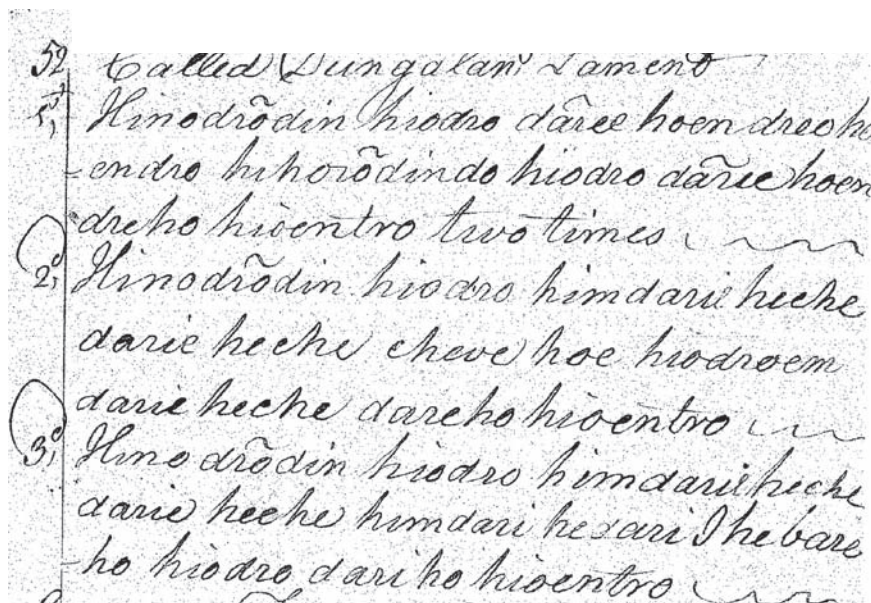 52 Called Dungalan's Lament
1st Hinodrōdin hiodro dāree hoen dreoho
-endro hihorōdindo hiodro dārie hoen
dreho hioentro two times
2d, Hinodrōdin hiodro himdarie heche
darie heche cheve hoe hiodroem
darie heche dareho hioentro
3d, Hinodrōdin hiodro himdarie heche
darie heche himdari he dari I hebare
-ho hiodro dari ho hioentro